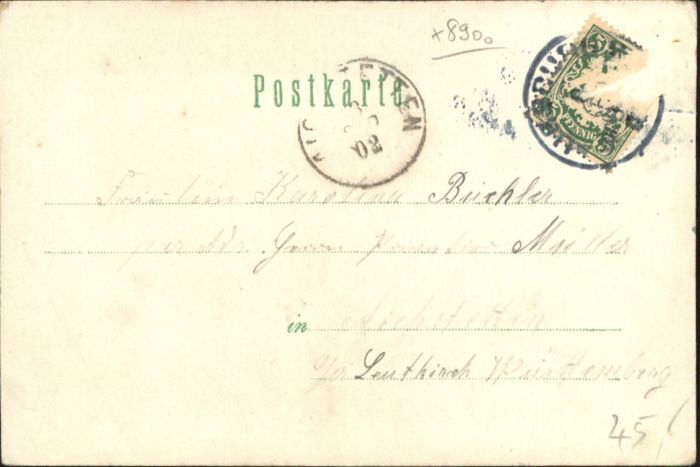 x8900
Postkarte
5
PFENNIG
02
Fräulein Karolina Buchler
per Adr. Herrn Müller
in Aichstetten
Leutkirch Württemberg
45,